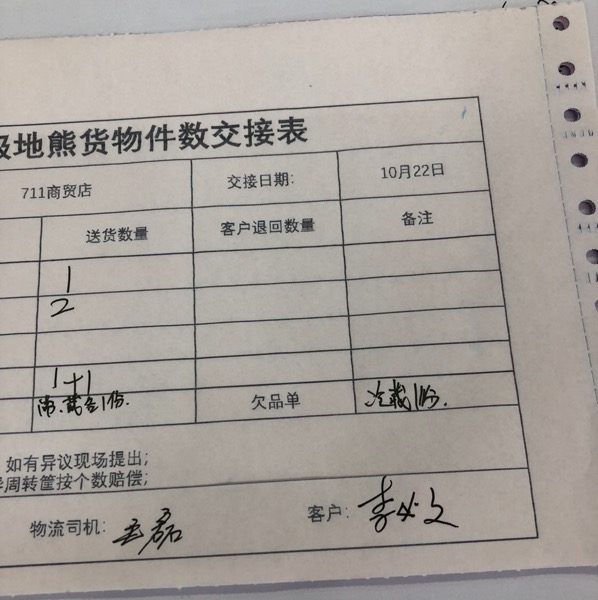 极地熊货物件数交接表
711商贸店 交接日期: 10月22日
送货数量 客户退回数量 备注
1
2
1+1
欠品单 冷藏1份.
如有异议现场提出;
周转筐按个数赔偿;
物流司机: 王磊 客户: 李必文